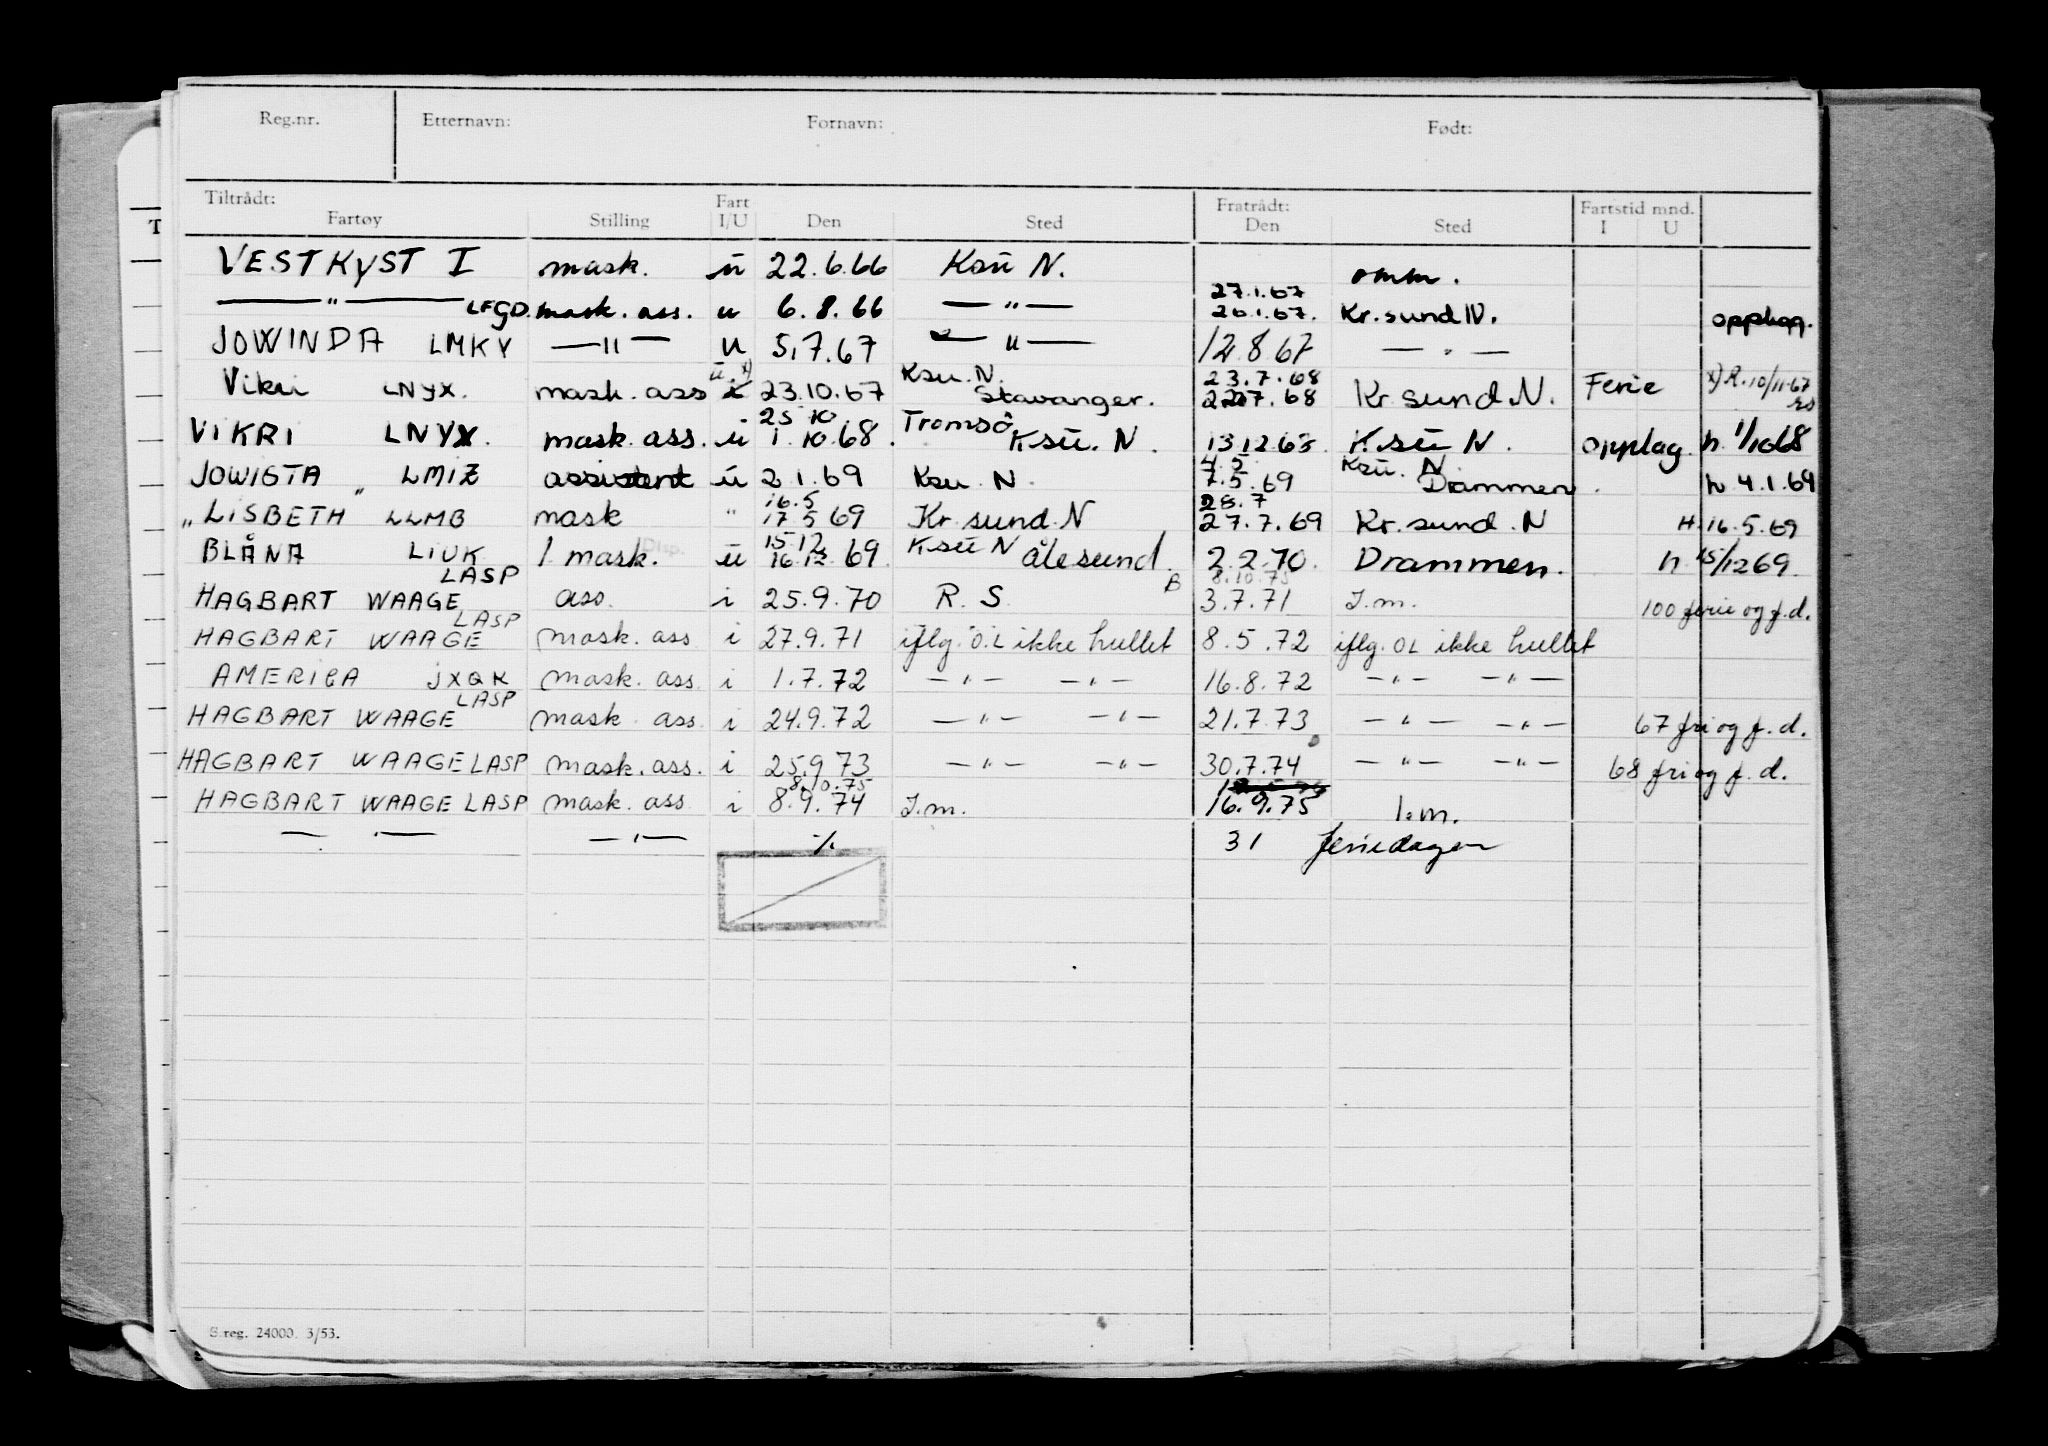 Reg.nr. Etternavn: Fornavn: Født:
Tiltrådt: Fart Fratrådt: Fartstid mnd.
Fartøy Stilling I/U Den Sted Den Sted I U
VESTKYST I mask. ü 22.6.66 Ksü N. omm.
—"— LFGD. mask. ass. u 6.8.66 —"— 27.1.67 26.1.67. Kr.sund N. opplag.
JOWINDA LMKY —"— u 5.7.67 —"— 12.8.67 —"—
Vikri LNYX. mask. ass ü x) 23.10.67 Ksu. N. Stavanger. 23.7.68 22.7.68 Kr.sund N. Ferie x) R. 10/11-67
VIKRI LNYX. mask. ass. ü 25 10 1.10.68. Tromsö Ksü. N. 13.12.68. Ksü N. opplag h. 1/1068
JOWISTA LMIZ assistent ü 2.1.69 Ksu. N. 4.5 7.5.69 Ksü. N Drammen. h 4.1.69
"LISBETH" LLMB mask " 16.5 17.5 69 Kr.sund.N 28.7 27.7.69 Kr.sund.N H. 16.5.69
BLÅNA LIUK 1 mask. ü 15.12 16.12.69. Ksü N Ålesund. 2.2.70. Drammen. h 15/1269.
HAGBART WAAGE LASP ass. i 25.9.70 R.S. B 8.10.75 3.7.71 I.m. 100 ferie og f.d.
HAGBART WAAGE LASP mask. ass i 27.9.71 iflg. O.L ikke hullet 8.5.72 iflg. OL ikke hullet
AMERICA JXQK mask. ass. i 1.7.72 —"— —"— 16.8.72 —"— —"—
HAGBART WAAGE LASP mask. ass. i 24.9.72 —"— —"— 21.7.73 —"— —"— 67 fri og f.d.
HAGBART WAAGE LASP mask. ass. i 25.9.73 —"— —"— 30.7.74 —"— —"— 68 fri og f.d.
HAGBART WAAGE LASP mask. ass i 8.10.75 8.9.74 I.m. 16.9.75 I.m.
—"— —"— ·/. 31 feriedager
S.reg. 24000. 3/53.